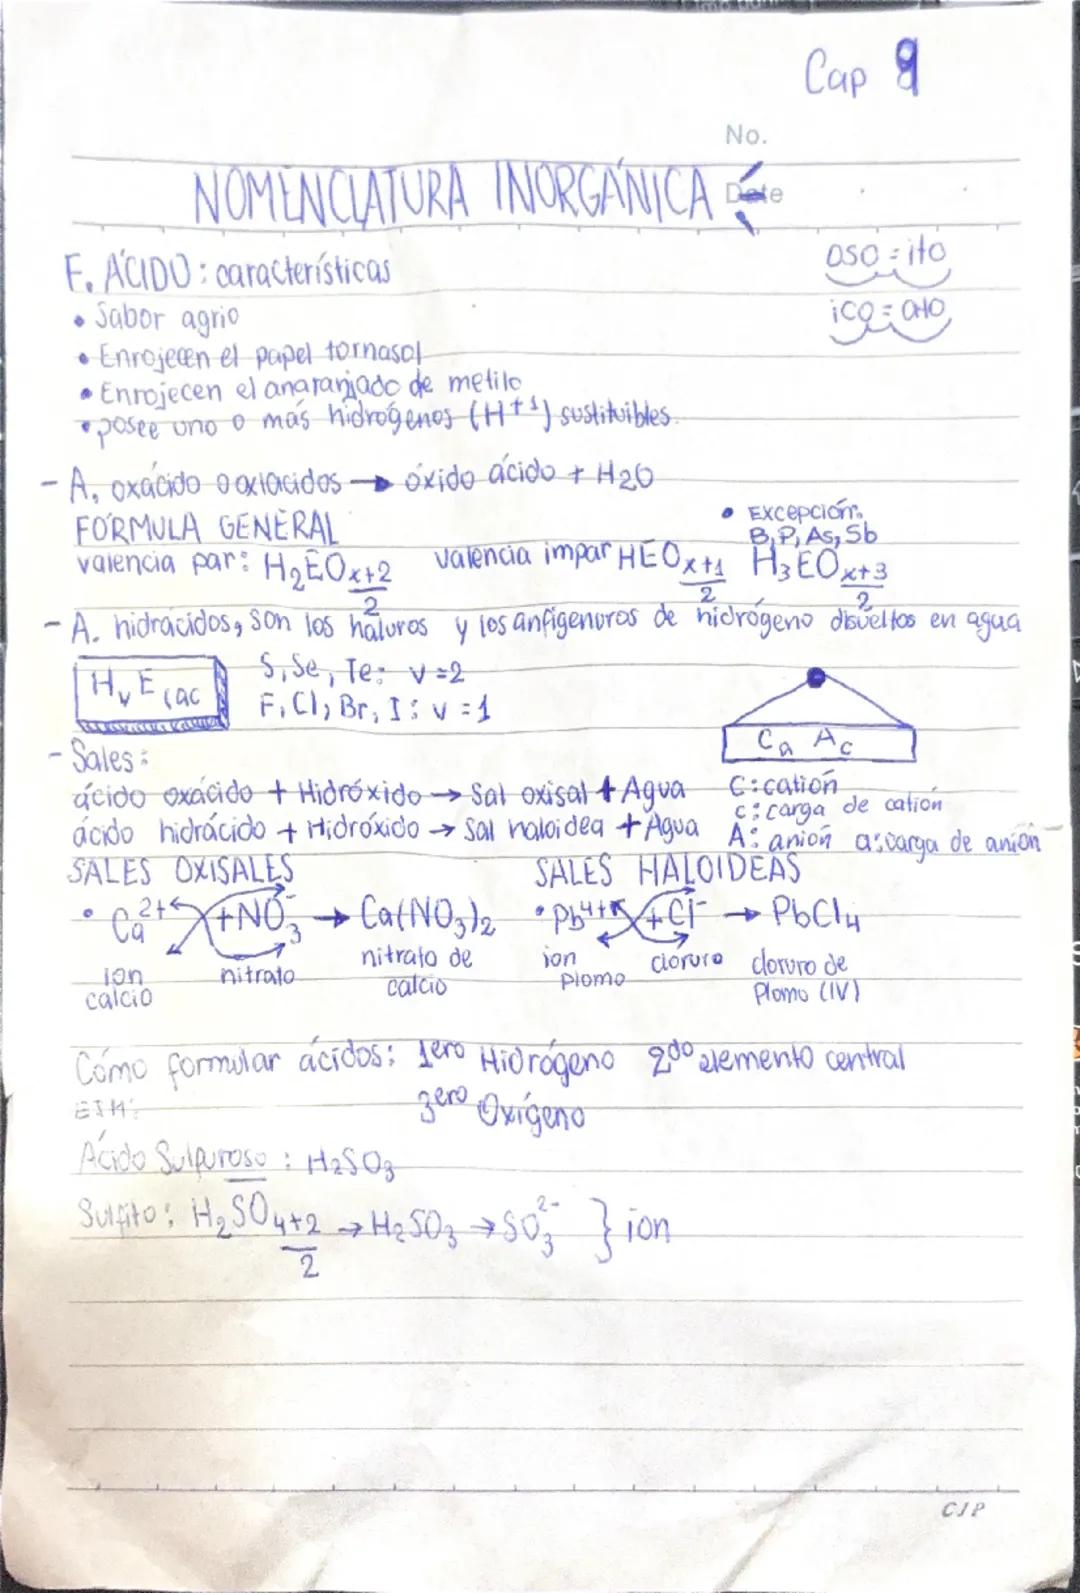 Cap 9
No.
NOMENCLATURA INORGÁNICA Date
F. ÁCIDO: características
oso = ito
ico = ato
• Sabor agrio
• Enrojecen el papel tornasol
• Enrojecen el anaranjado de metilo
• posee uno o más hidrógenos (H+1) sustituibles.
- A. oxácido o oxiacidos → óxido ácido + H2O
FÓRMULA GENERAL
• Excepción:
B, P, As, Sb
valencia par: H2EO x+2/2 valencia impar HEO x+1/2 H3EO x+3/2
- A. hidrácidos, son los haluros y los anfigenuros de hidrógeno disueltos en agua
HvE(ac
S, Se, Te: v=2
F, Cl, Br, I: v=1
Ca Ac
- Sales:
ácido oxácido + Hidróxido → Sal oxisal + Agua
C: catión
c: carga de catión
ácido hidrácido + Hidróxido → Sal haloidea + Agua
A: anión a: carga de anión
SALES OXISALES SALES HALOIDEAS
• Ca2+ + NO3- → Ca(NO3)2 • Pb4+ + Cl- → PbCl4
ion calcio nitrato nitrato de calcio ion Plomo cloruro cloruro de Plomo (IV)
Cómo formular ácidos: 1ero Hidrógeno 2do elemento central
3ero Oxígeno
EJM:
Ácido Sulfuroso: H2SO3
Sulfito: H2SO 4+2/2 → H2SO3 → SO3 2- } ion
CJP